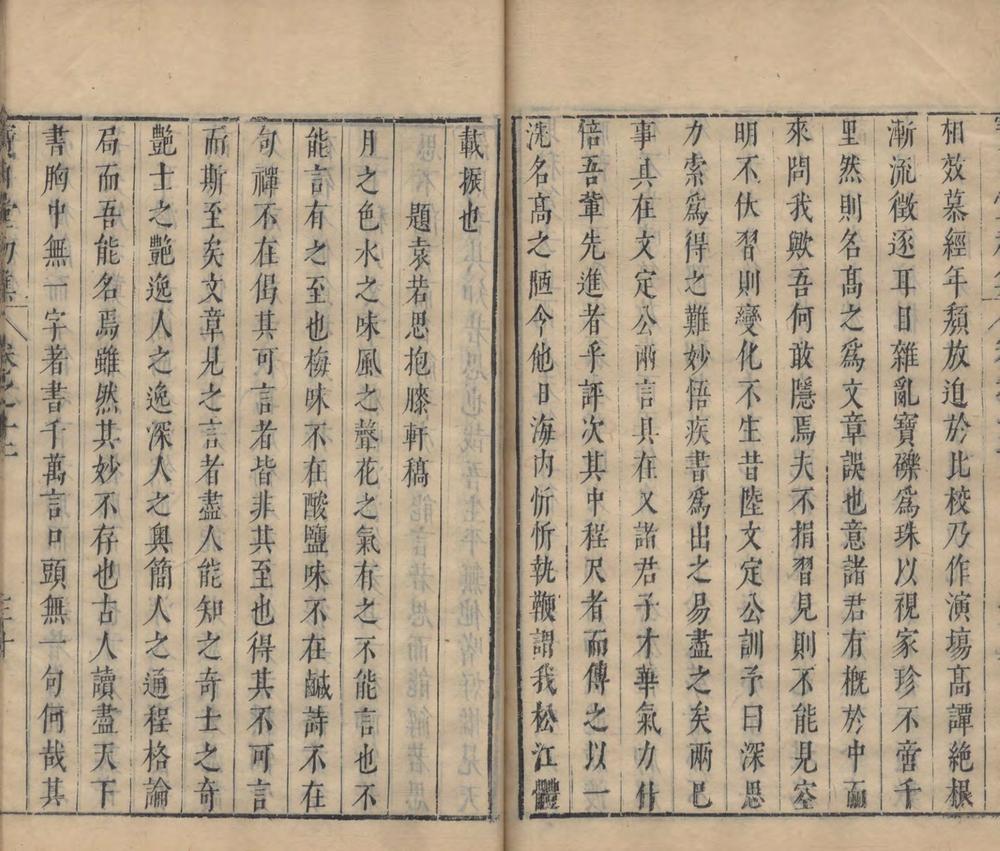 相效慕經年頹放迫於比校乃作演場高譚絕根
漸流徵逐耳目雜亂寶礫為珠以視家珍不啻千
里然則名高之為文章誤也意諸君有概於中而
來問我歟吾何敢隱焉夫不捐習見則不能見塗
明不伏習則變化不生昔陸文定公訓予曰深思
力索為得之難妙悟疾書為出之易盡之矣兩巳
事具在文定公兩言具在又諸君子才華氣力什
倍吾輩先進者乎評次其中程尺者而傳之以一
洗名高之陋今他日海內忻忻執鞭謂我松江體
載振也
題袁若思抱膝軒稿
月之色水之味風之聲花之氣有之不能言也不
能言有之至也梅味不在酸鹽味不在鹹詩不在
句禪不在偈其可言者皆非其至也得其不可言
而斯至矣文章見之言者盡人能知之奇士之奇
艷士之艷逸人之逸深人之奧簡人之通程格論
局而吾能名焉雖然其妙不存也古人讀盡天下
書胸中無一字者書千萬言口頭無一句何哉其